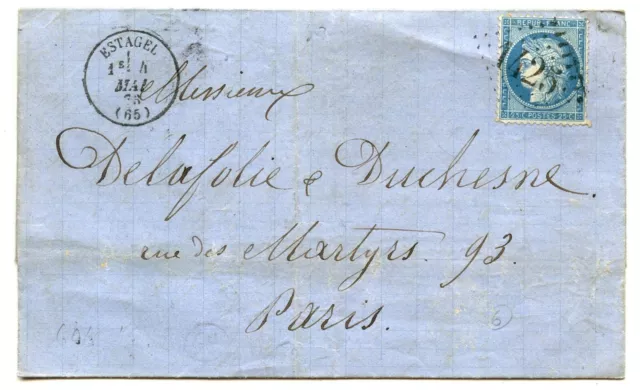 ESTAGEL
1
1E 4
MAI
(65)
REPUB. FRANC.
1425
25 C POSTES 25 C
Messieurs
Delafolie & Duchesne
rue des Martyrs. 93.
Paris.
6